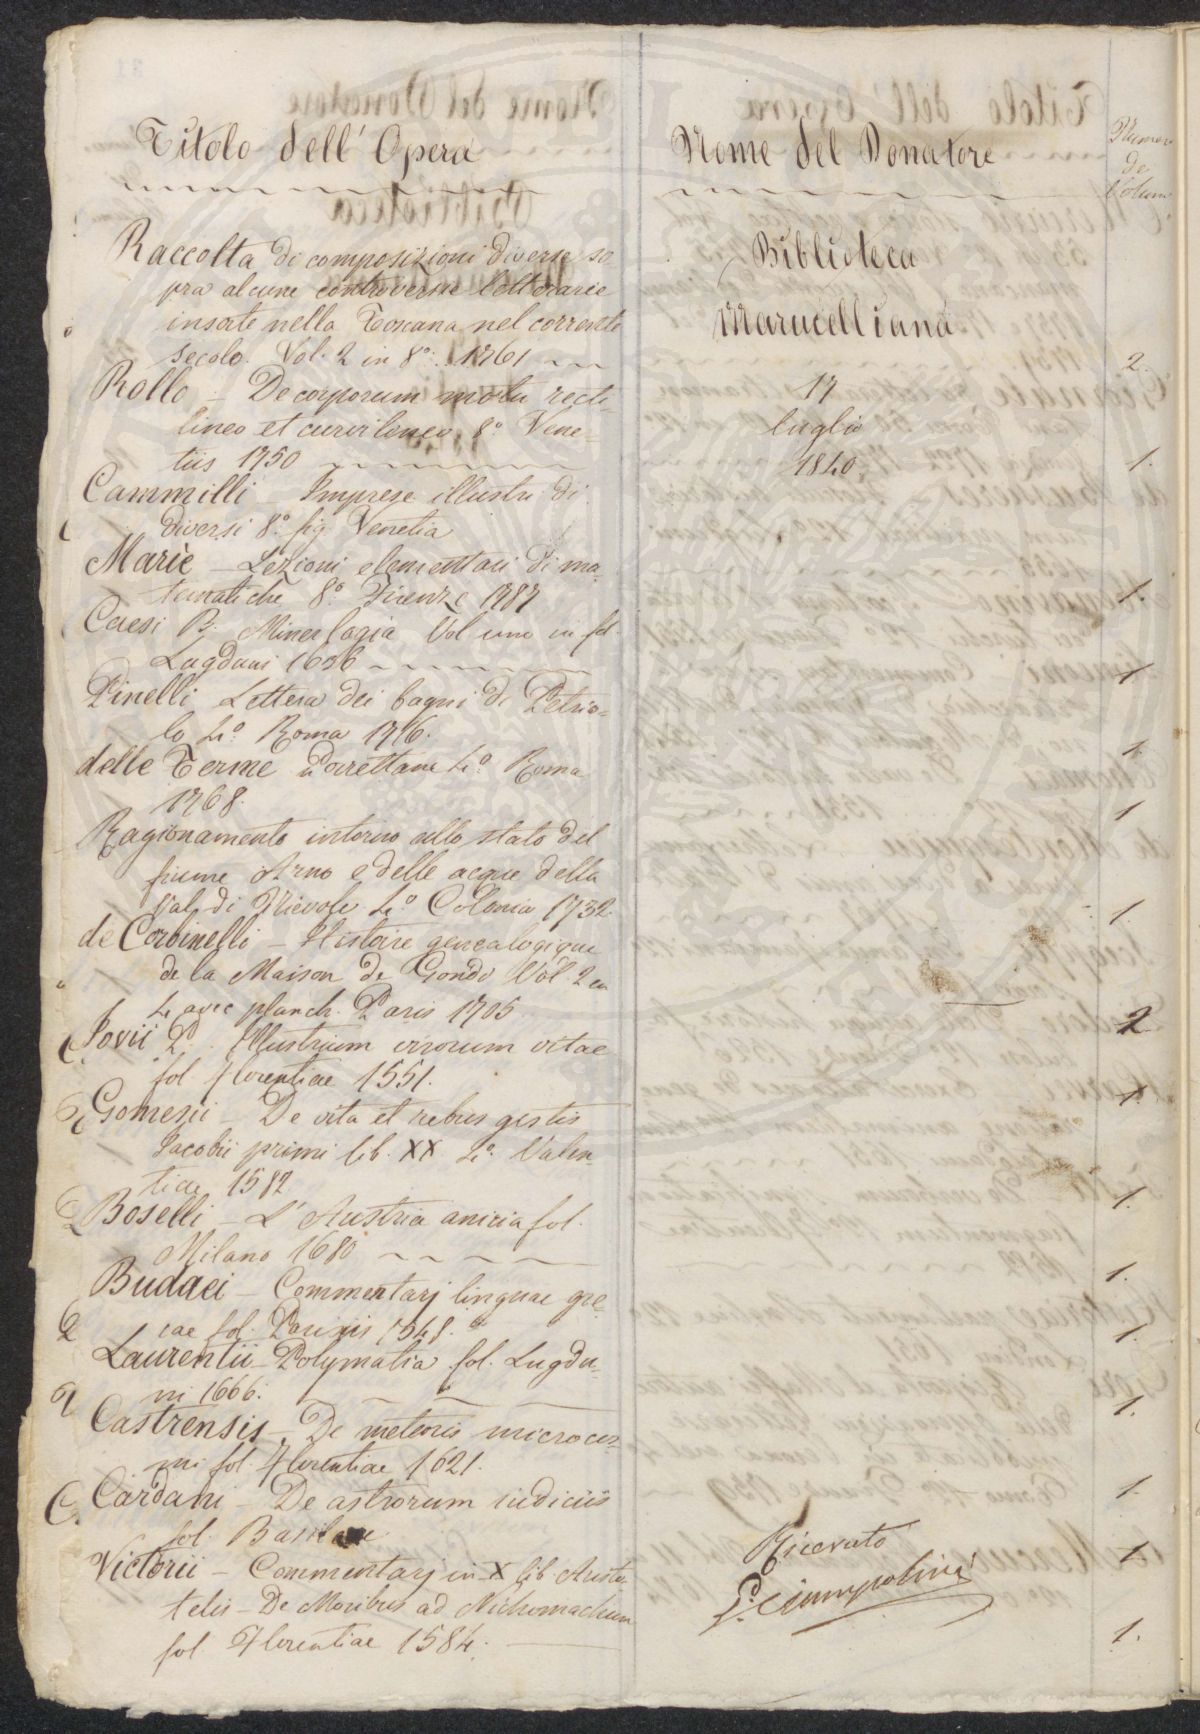 Titolo dell' Opera
Raccolta di composizioni diverse so
pra alcune controversie letterarie
insorte nella Toscana nel corrente
secolo. Vol. 2 in 8º. 1761
Rollo - De corporum motu recti-
lineo et curvilineo 8º Vene=
tiis 1750
Cammilli - Imprese illustri di
diversi 8º fig Venetia
Marie - Lezioni elementari di ma-
tematiche 8º Firenze 1787
Caesi B. Mineralogia Vol uno in fol.
Lugduni 1636
Pinelli Lettera dei bagni di Petrio=
lo 4º Roma 1716.
delle Terme Porrettane 4º Roma
1768.
Ragionamento intorno allo stato del
fiume Arno e delle acque della
Val di Nievole 4º Colonia 1732.
de Corbinelli - Histoire genealogique
de la Maison de Gondi Vol 2 en
4 avec planch. Paris 1705
Jovii P. Illustrium virorum vitae
fol Florentiae 1551.
Gomesii - De vita et rebus gestis
Jacobii primi lib. XX 4º Valen-
tiae 1582
Boselli - L' Austria anicia fol.
Milano 1680
Budaei - Commentarj linguae gre-
cae fol. Parisiis 1548.
Laurentii - Polymatia fol. Lugdu-
ni 1666.
Castrensis - De meteoris microcos-
mi fol. Florentiae 1621.
Cardani - De astrorum iudiciis
fol. Basileae
Victorii - Commentarj in X lib. Aristo-
telis - De Moribus ad Nichomachum
fol. Florentiae 1584.
Nome del Donatore
Biblioteca
Marucelliana
17
luglio
1840
Ricevuto
Numero
de
Volumi
2.
1.
1.
1
1.
1
1.
2
1.
1.
1.
1.
1.
1.
1.
1.